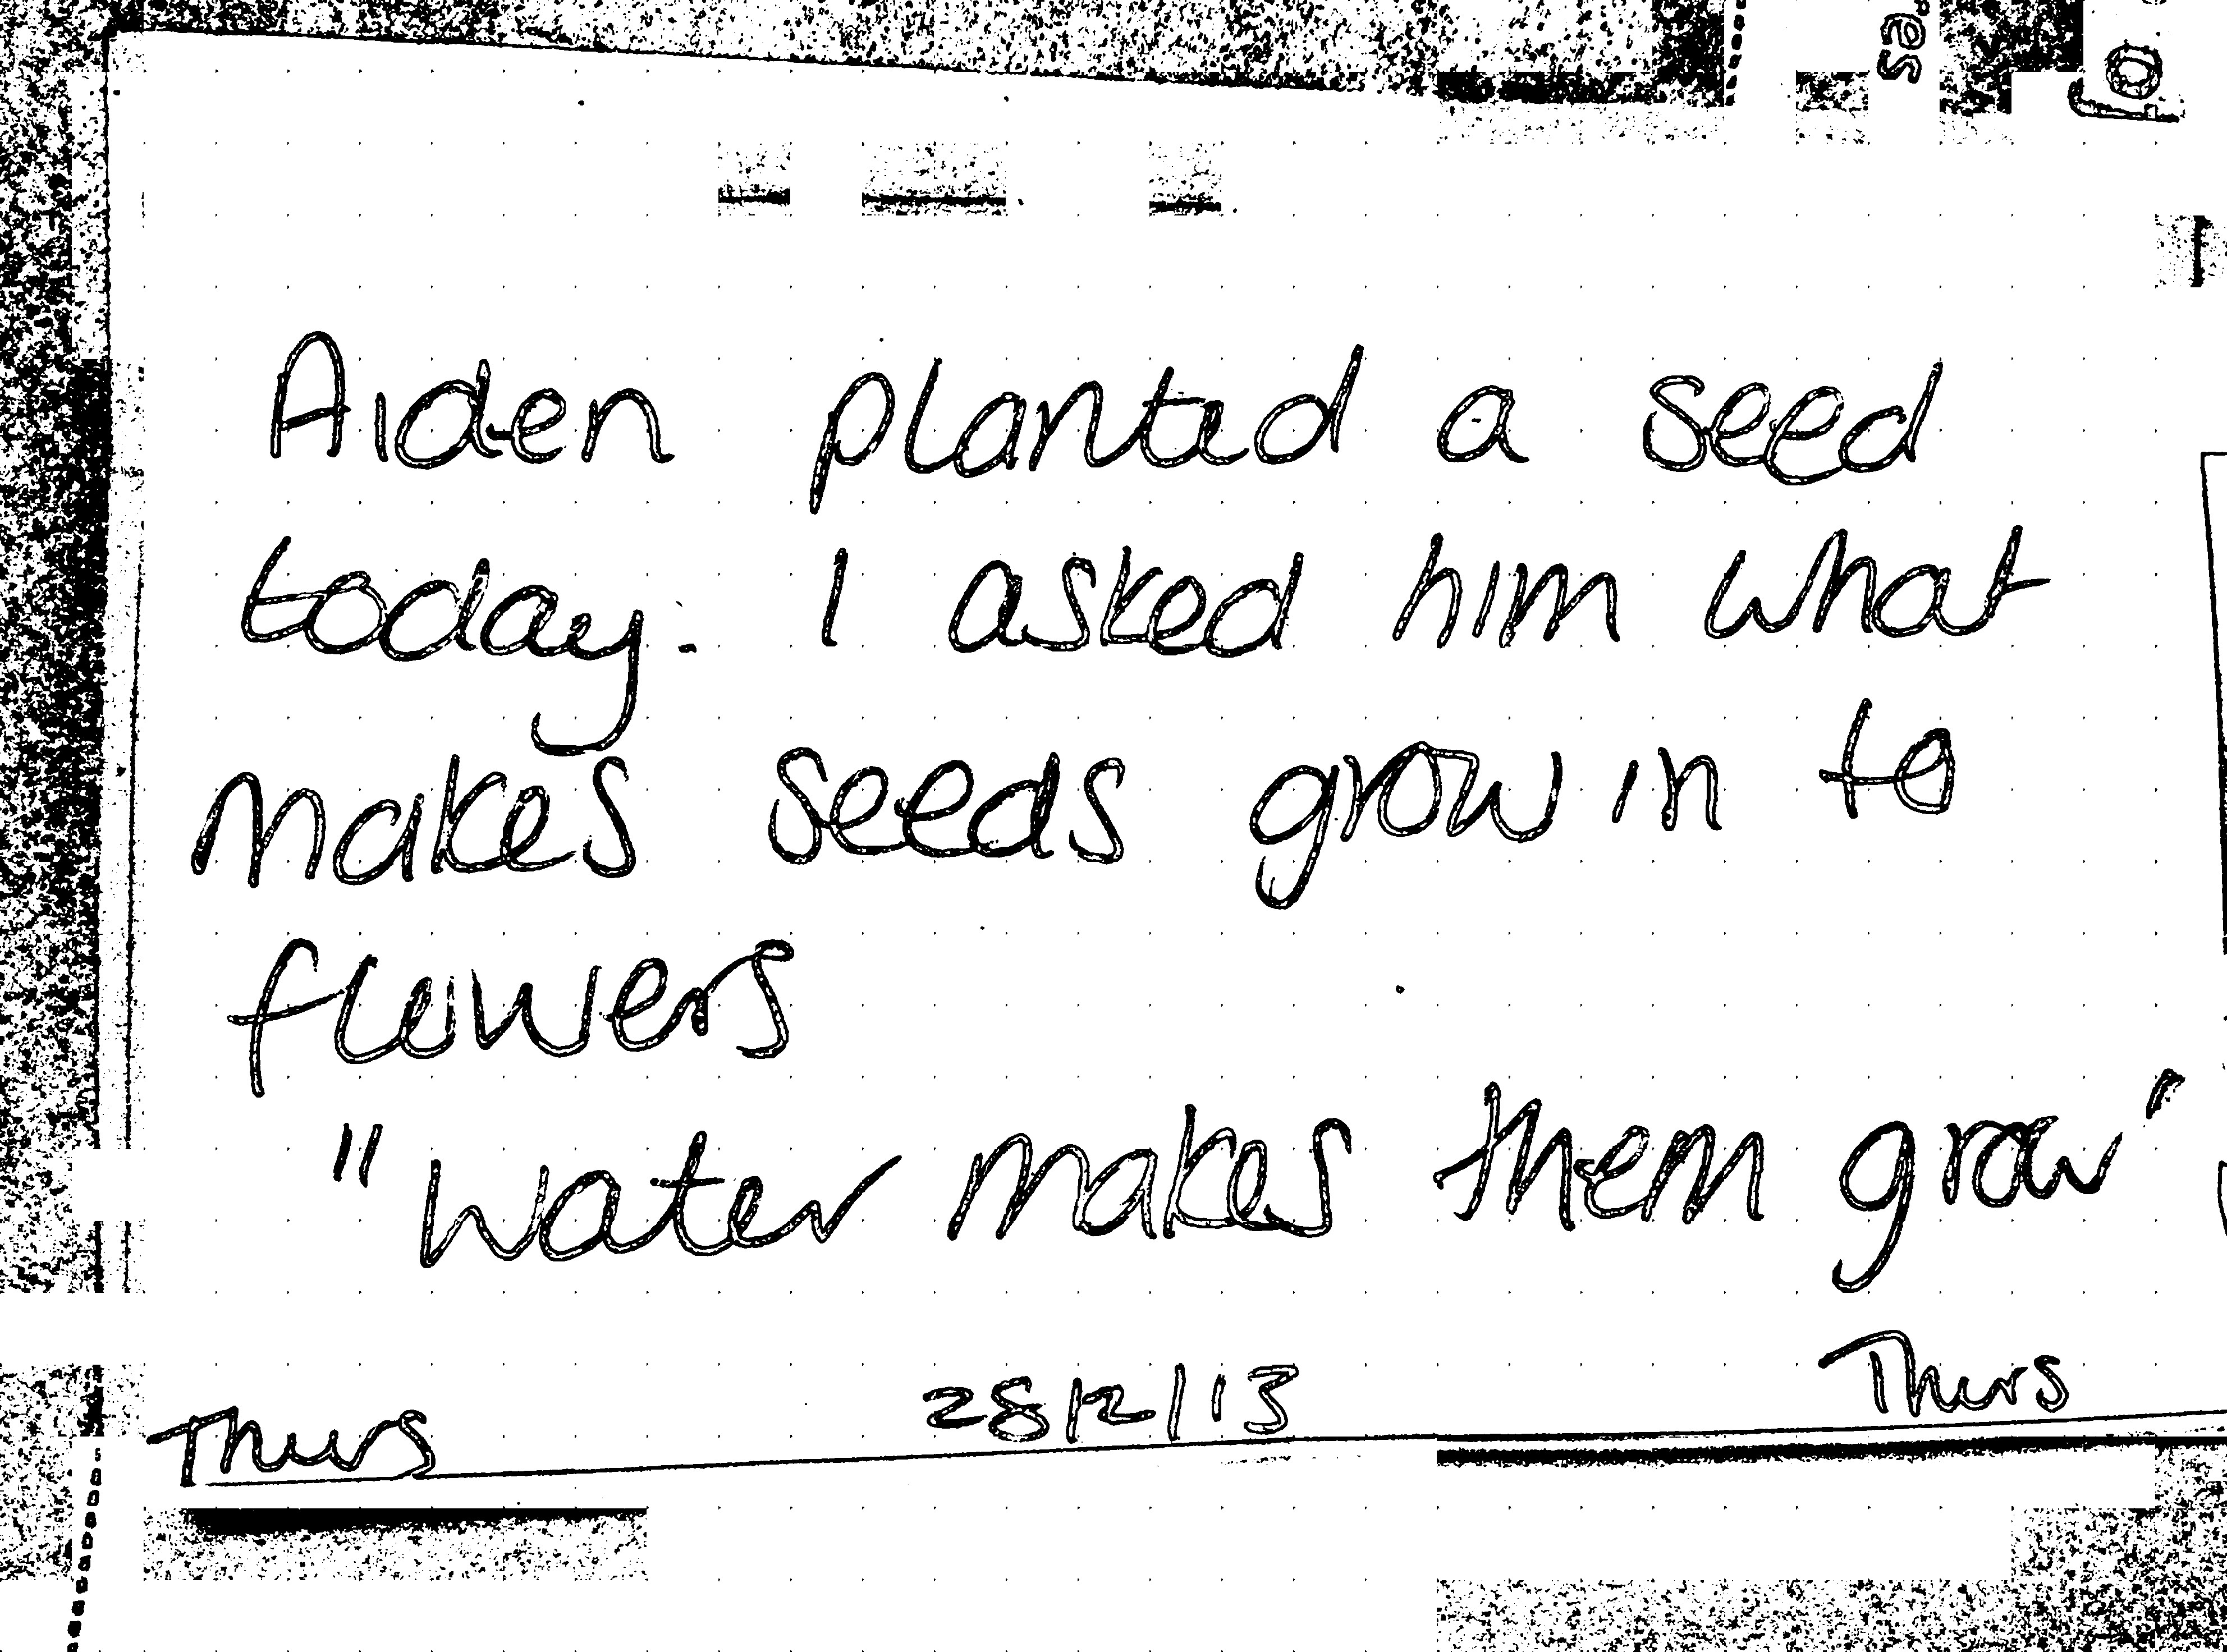 Aiden planted a seed
today. I asked him what
makes seeds grow in to
flowers
"Water makes them grow"
Thurs 28/2/13 Thurs